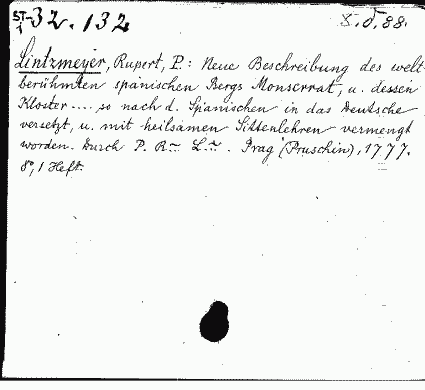 ST 32.132
1
8.J.88.
Lintzmeyer, Rupert, P.: Neue Beschreibung des welt-
berühmten spanischen Bergs Monserrat, u. dessen
Kloster .... so nach d. Spanischen in das Deutsche
versetzt, u. mit heilsamen Sittenlehren vermengt
worden. Durch P. R~ L~. Prag (Pruschin), 1777.
8°, 1 Heft.